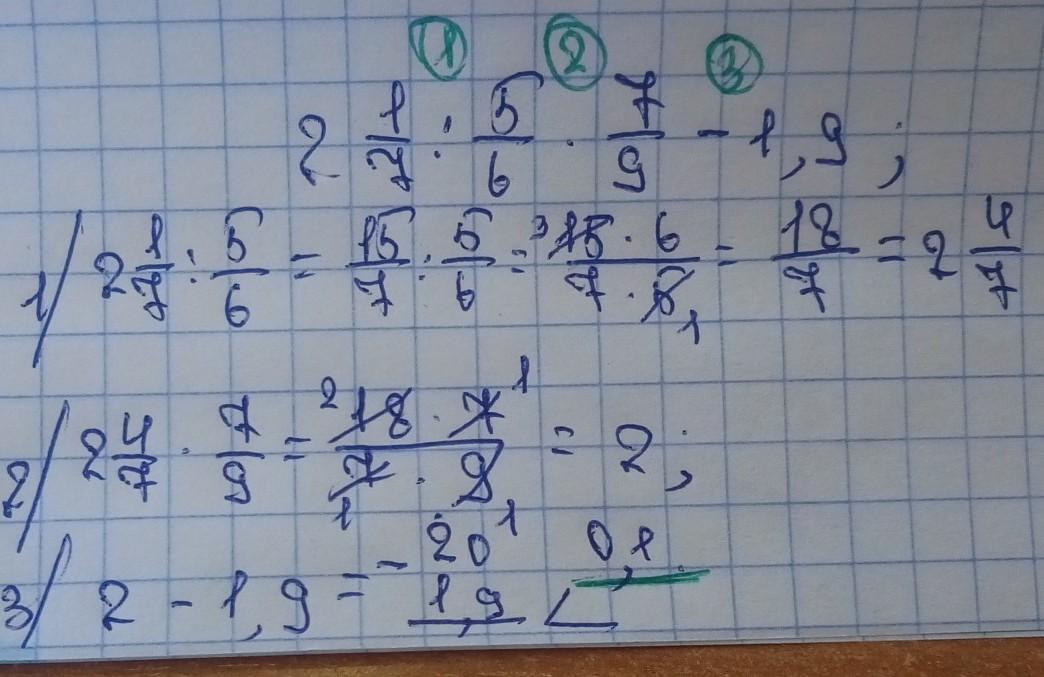 ① ② ③
2 1/7 : 5/6 · 7/9 - 1,9 ;
1/ 2 1/7 : 5/6 = 15/7 : 5/6 = ³15 · 6 / 7 · 5₁ = 18/7 = 2 4/7
2/ 2 4/7 · 7/9 = ²18 · 7¹ / ₁7 · 9₁ = 2 ;
3/ 2 - 1,9 = - 2,0 / 1,9 0,1